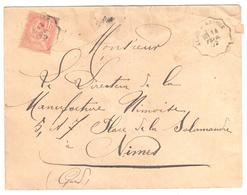 Monsieur
Le Directeur de la
Manufacture Nimoise
5, A 7 Place de la Salamandre
à
Nimes
(Gard)